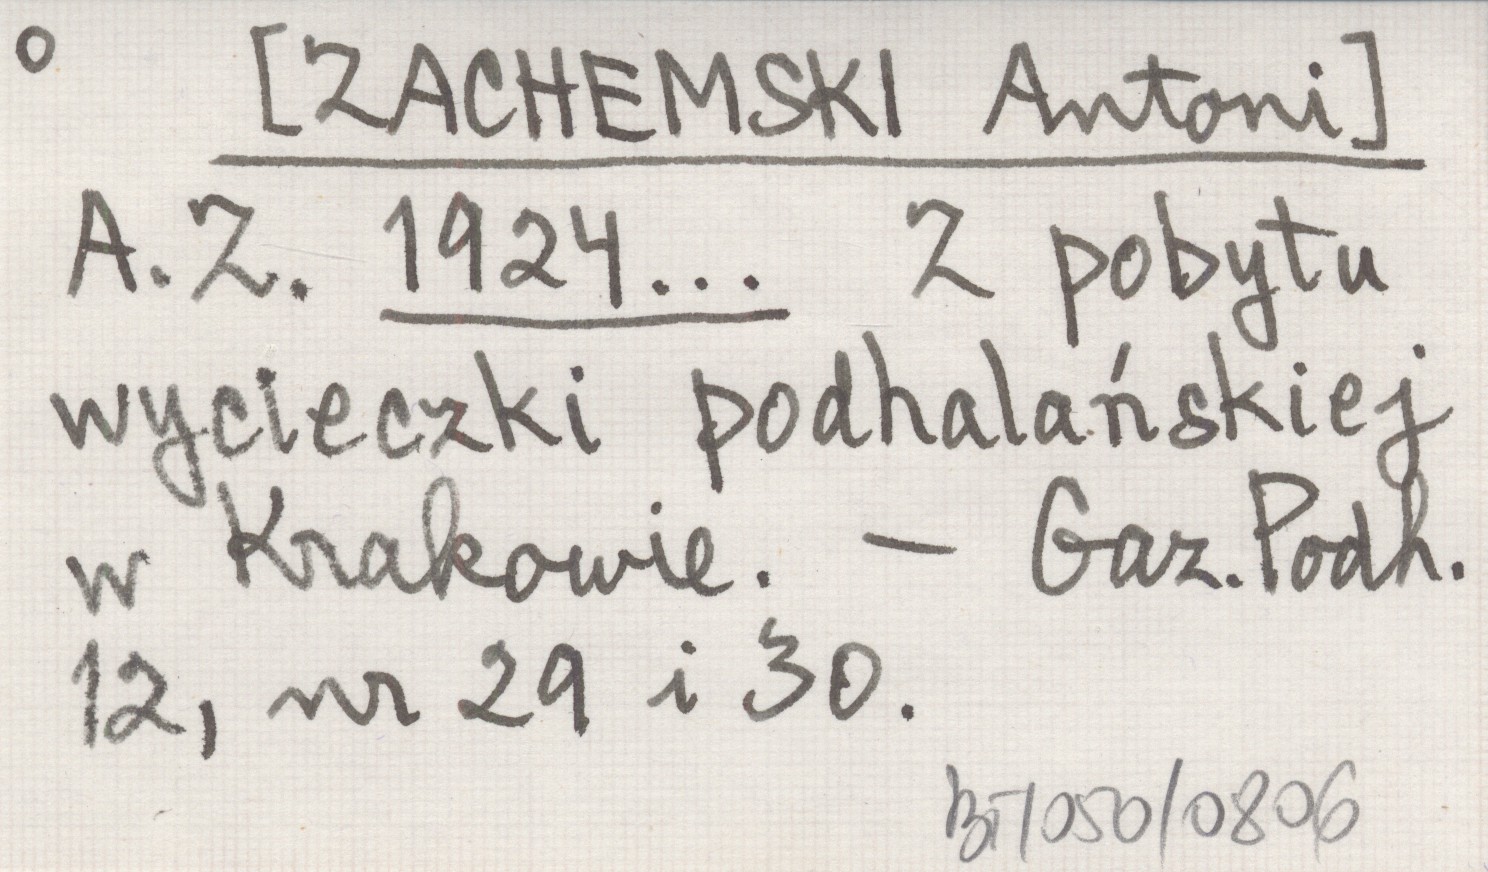 o [ZACHEMSKI Antoni]
A.Z. 1924... Z pobytu
wycieczki podhalańskiej
w Krakowie. — Gaz. Podh.
12, nr 29 i 30.
BT/050/0806